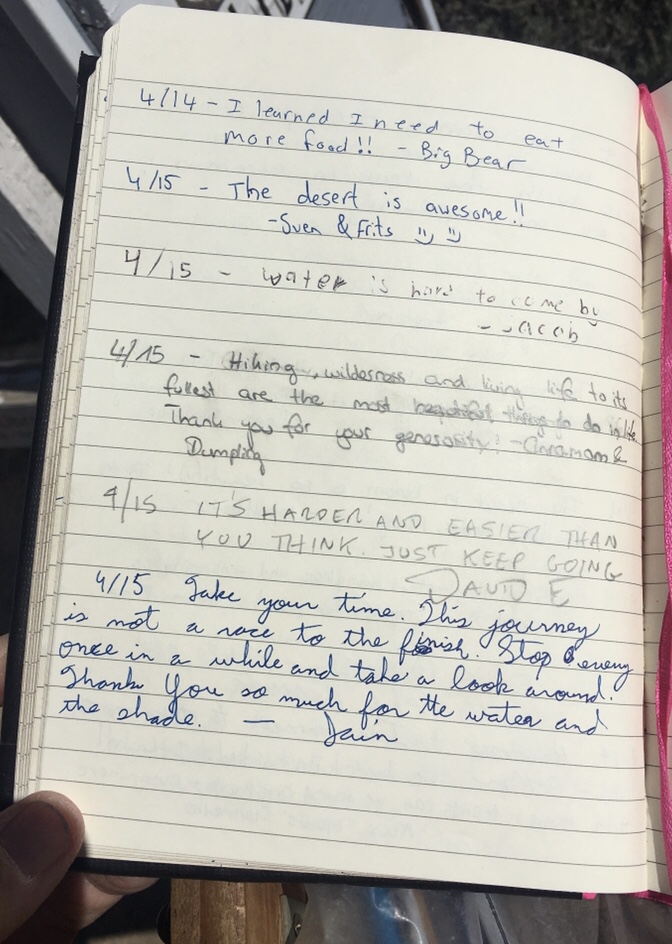 4/14 - I learned I need to eat
more food!! - Big Bear
4/15 - The desert is awesome!!
- Sven & Frits
4/15 - water is hard to come by
- Jacob
4/15 - Hiking, wilderness and living life to its
fullest are the most beautiful things to do in life
Thank you for your generosity! - Cinnamon &
Dumpling
4/15 IT'S HARDER AND EASIER THAN
YOU THINK. JUST KEEP GOING
DAVID E
4/15 Take your time. This journey
is not a race to the finish. Stop every
once in a while and take a look around.
Thank You so much for the water and
the shade. —